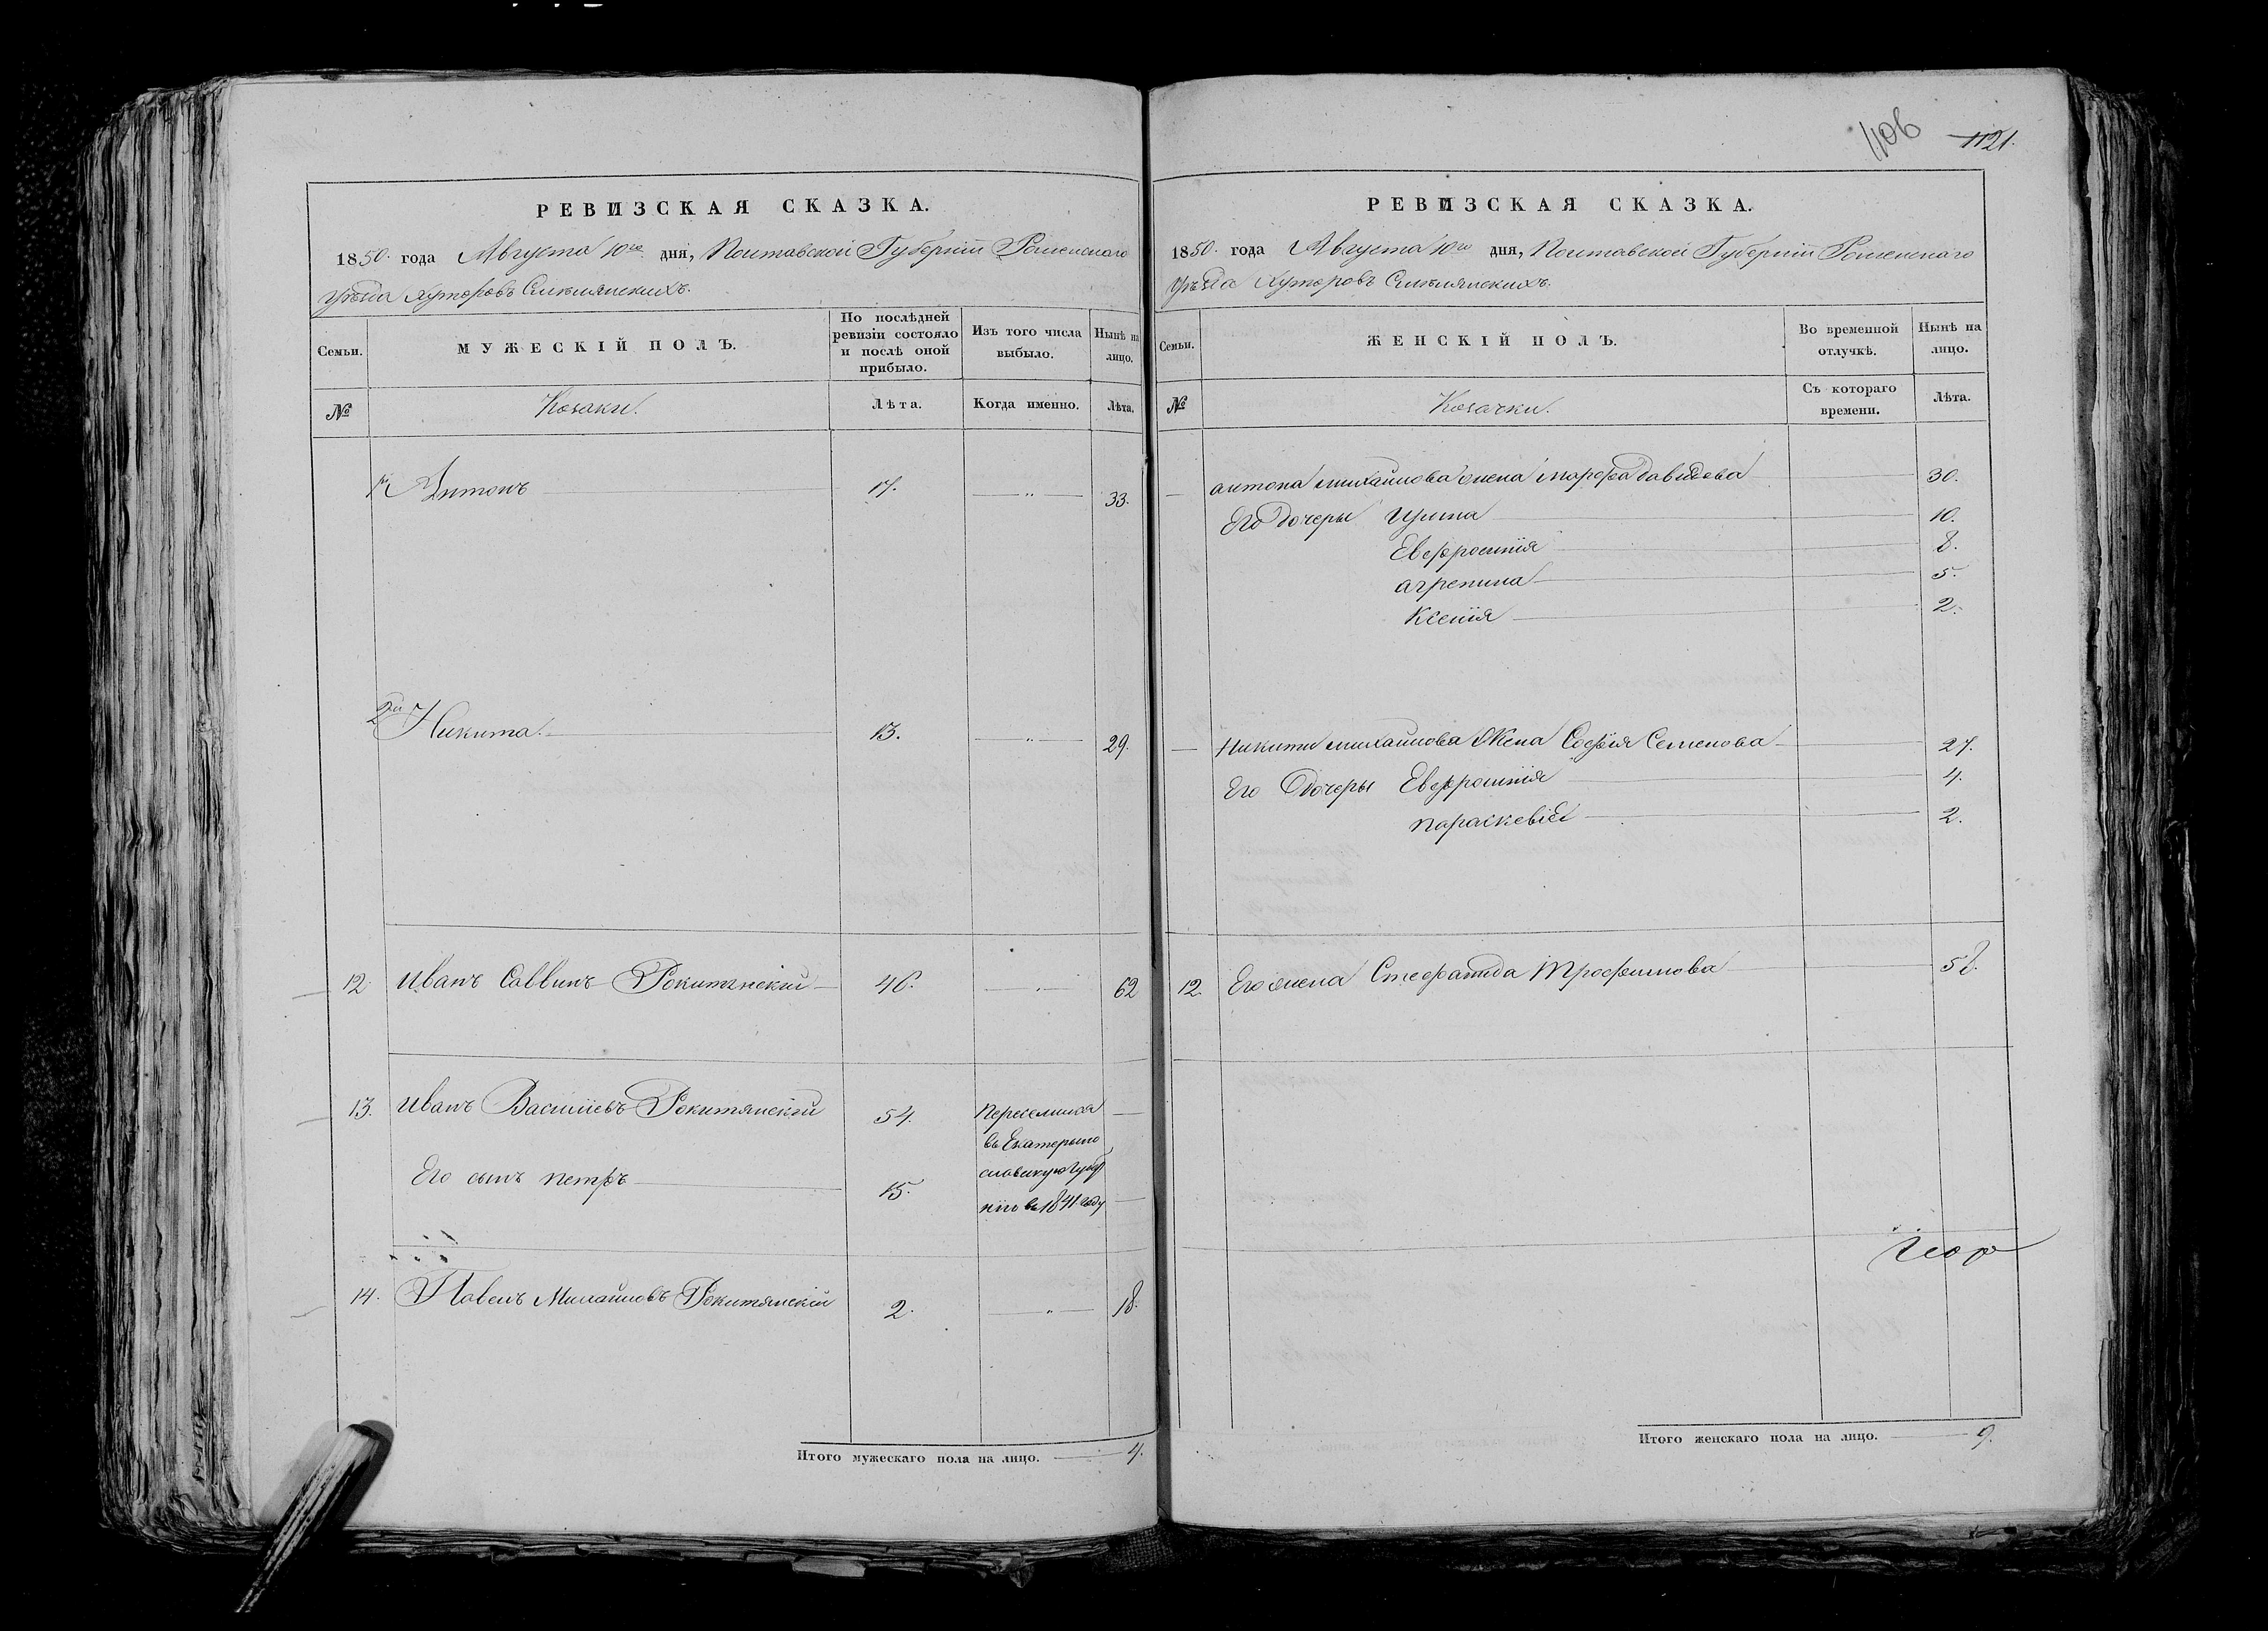 1106 1121.
РЕВИЗСКАЯ СКАЗКА.
1850. года Августа 10го дня, Полтавской Губерніи Роменского
Уѣзда Хуторовъ
Семьи.
МУЖЕСКІЙ ПОЛЪ.
По послѣдней ревизіи состояло и послѣ оной прибыло.
Изъ того числа выбыло.
Нынѣ на лицо.
№
Козаки.
Лѣта.
Когда именно.
Лѣта.
1й Антонъ 17. 33.
2й Никита 13. 29.
12. Иванъ Саввинъ Рокитянскій 46. 62
13. Иванъ Васильевъ Рокитянскій 54. Переселился
въ Екатерино
славскую Губер
Его сынъ петръ 15.
нію въ 1841 году
14. Павелъ Михайловъ Рокитянскій 2. 18.
Итого мужескаго пола на лицо. 4.
РЕВИЗСКАЯ СКАЗКА.
1850. года Августа 10го дня, Полтавской Губерніи Роменского
Уѣзда Хуторовъ
Семьи.
ЖЕНСКІЙ ПОЛЪ.
Во временной отлучкѣ.
Нынѣ на лицо.
№
Козачки.
Съ котораго времени.
Лѣта.
антона михайлова жена марфа давидова 30.
Его дочеры Ирина 10.
Евфросинія 8.
агрепина 5.
Ксенія 2.
Никиты михайлова Жена Софія Семенова 27.
Его Дочеры Евфросинія 4.
параскевія 2.
12. Его жена Стефанида Трофимова 58.
Итого женскаго пола на лицо. 9.